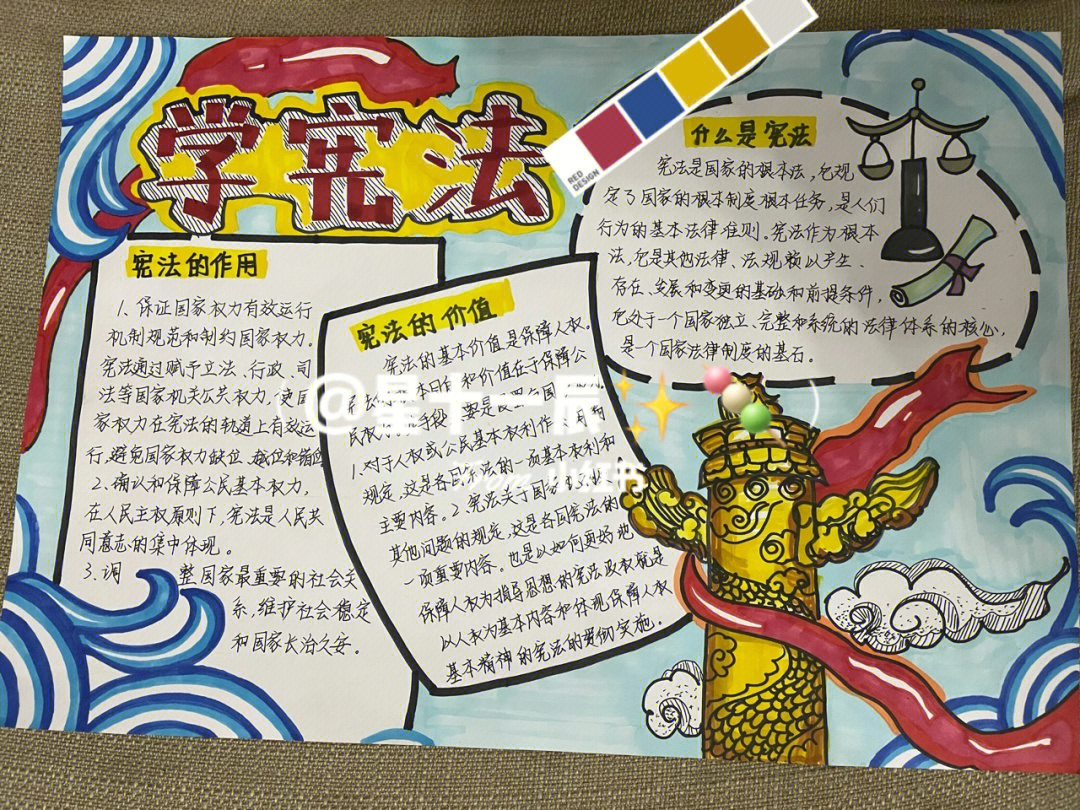 学宪法
RED
DESIGN
什么是宪法
宪法是国家的根本法，它规
定了国家的根本制度根本任务，是人们
行为的基本法律准则。宪法作为根本
法，它是其他法律、法规赖以产生、
存在、发展和变更的基础和前提条件，
它处于一个国家独立、完整和系统的法律体系的核心，
是一个国家法律制度的基石。
宪法的作用
1.保证国家权力有效运行
机制规范和制约国家权力。
宪法通过赋予立法、行政、司
法等国家机关公共权力，使国
家权力在宪法的轨道上有效运
行，避免国家权力缺位、越位和错位
2.确认和保障公民基本权力，
在人民主权原则下，宪法是人民共
同意志的集中体现。
3.调 整国家最重要的社会关
系，维护社会稳定
和国家长治久安。
宪法的价值
宪法的基本价值是保障人权。
宪法的基本目的和价值在于保障公
民权 手段 要是 公国
1.对于人权或公民基本权利作 和
规定，这是各 宪法的一项基本权利和
主要内容。2.宪法关于国家
其他问题的规定，这是各国宪法的
一项重要内容。也是以如何更好地
保障人权为指导思想的宪法政权就是
以人权为基本内容和体现保障人权
基本精神的宪法的贯彻实施。
@星十一辰
From 小红书